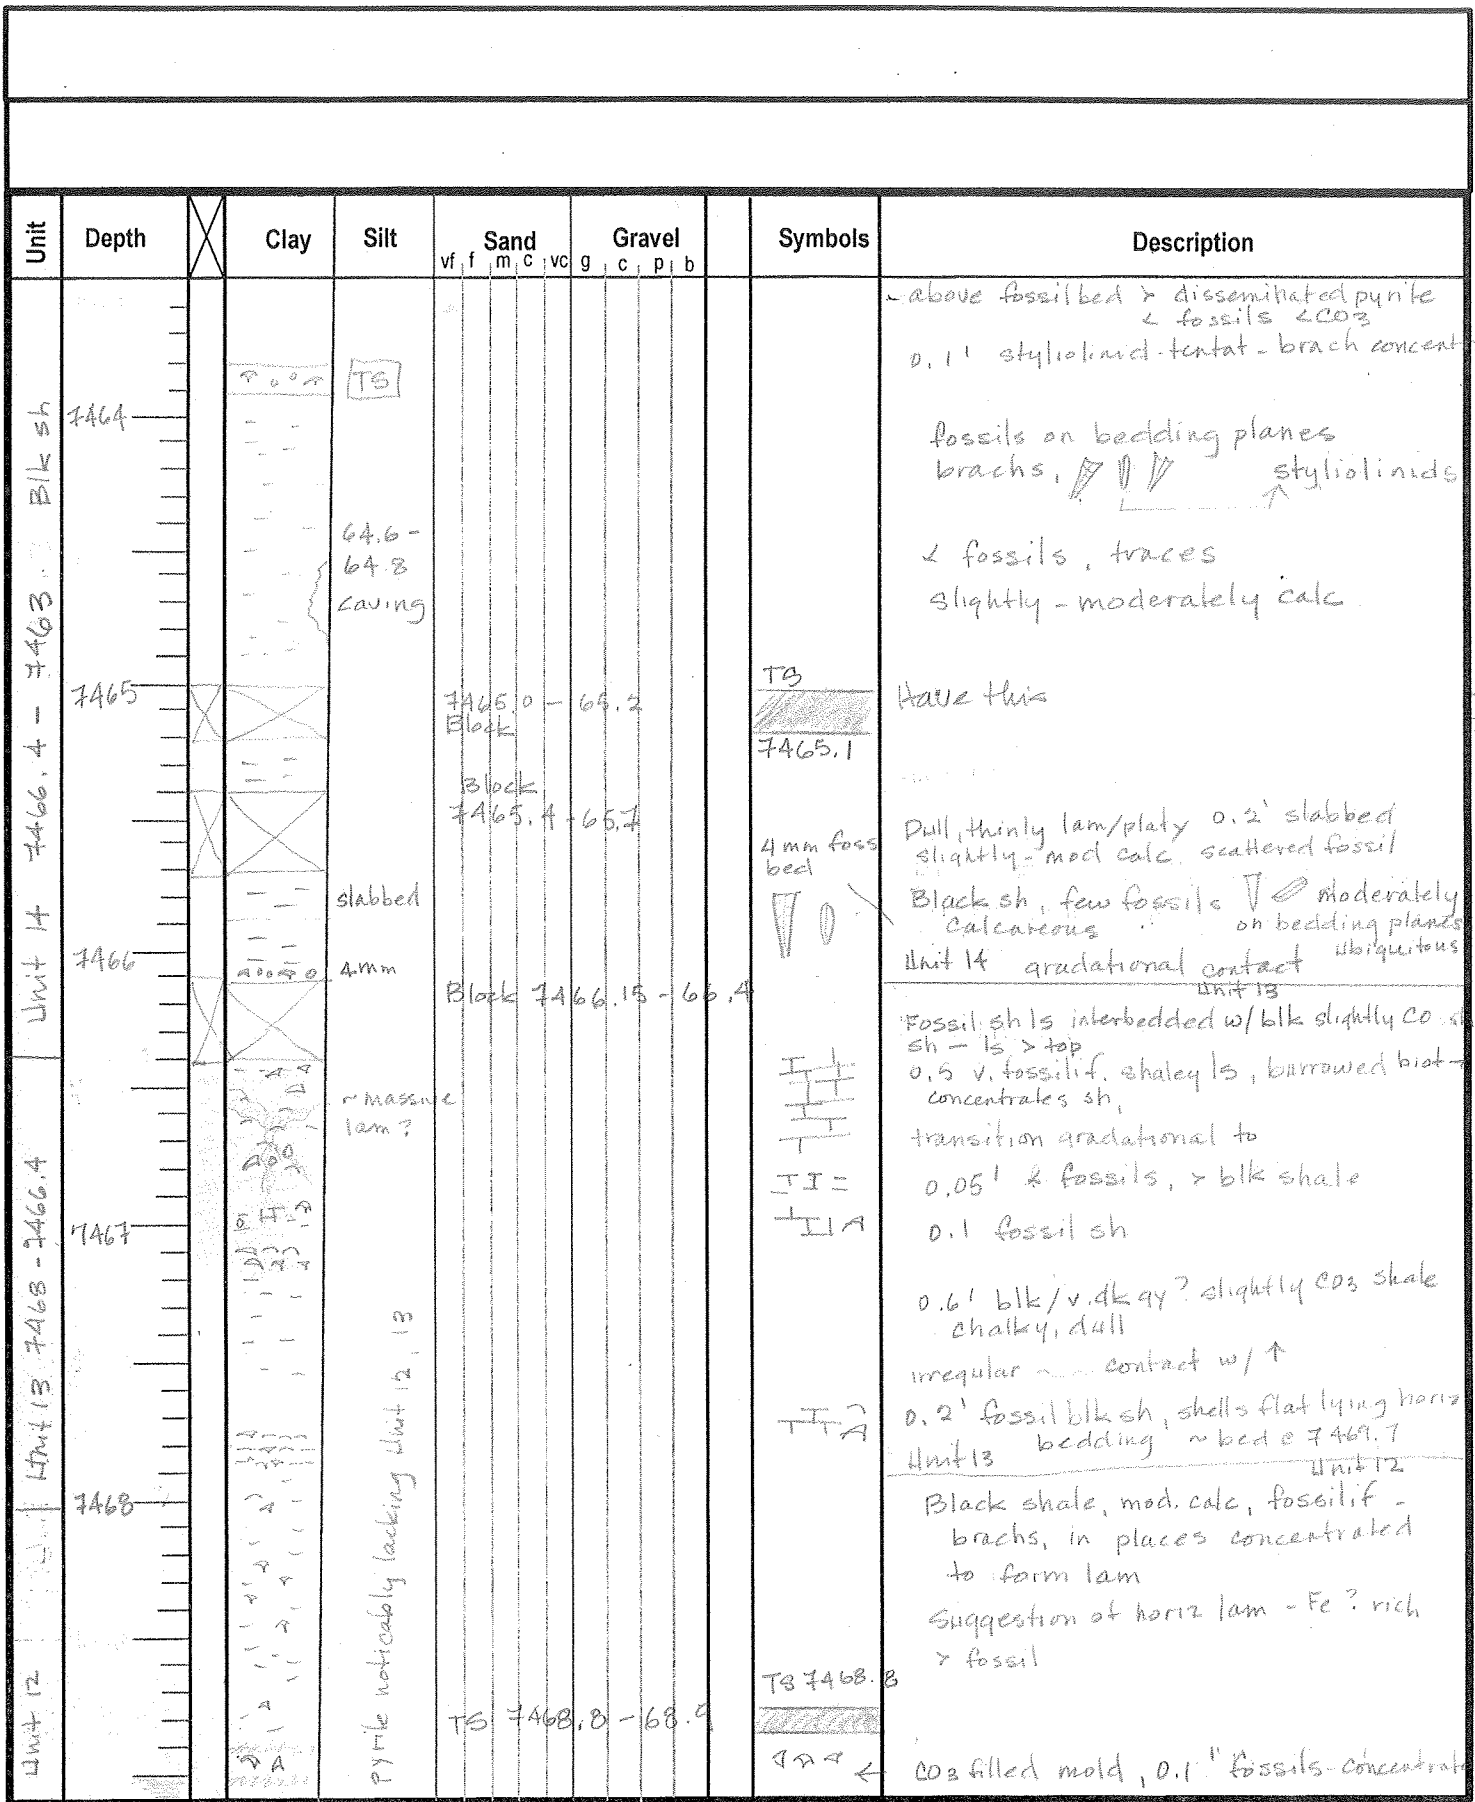 Unit Depth Clay Silt Sand Gravel Symbols Description
vf f m c vc g c p b
Unit 14 7466.4 - 7463 Blk sh
Unit 13 7468 - 7466.4
Unit 12
7464
7465
7466
7467
7468
TS
64.6 -
64.8
caving
slabbed
4mm
~ massive
lam?
pyrite noticably lacking Unit 12, 13
7465.0 - 65.2
Block
Block
7465.4 - 65.7
Block 7466.15 - 66.4
TS 7468.8 - 68.9
TS
7465.1
4 mm foss
bed
TS 7468.8
- above fossil bed > disseminated pyrite
< fossils < CO3
0.1' styliolinid-tentat - brach concent
fossils on bedding planes
brachs, styliolinids
< fossils, traces
slightly - moderately calc
Have this
Dull, thinly lam/platy 0.2' slabbed
slightly - mod calc. scattered fossil
Black sh, few fossils moderately
Calcareous on bedding planes
Ubiquitous
Unit 14 gradational contact
Unit 13
Fossil sh ls interbedded w/ blk slightly CO
sh - ls > top
0.5 v. fossilif. shaley ls, burrowed biot
concentrates sh,
transition gradational to
0.05' & fossils, > blk shale
0.1 fossil sh
0.6' blk/v.dk gy? slightly CO3 shale
chalky, dull
irregular ~ contact w/ ↑
0.2' fossil blk sh, shells flat lying horiz
bedding ~ bed @ 7467.7
Unit 13
Unit 12
Black shale, mod. calc, fossilif -
brachs, in places concentrated
to form lam
Suggestion of horiz lam - Fe? rich
> fossil
← CO3 filled mold, 0.1' fossils-concentrate